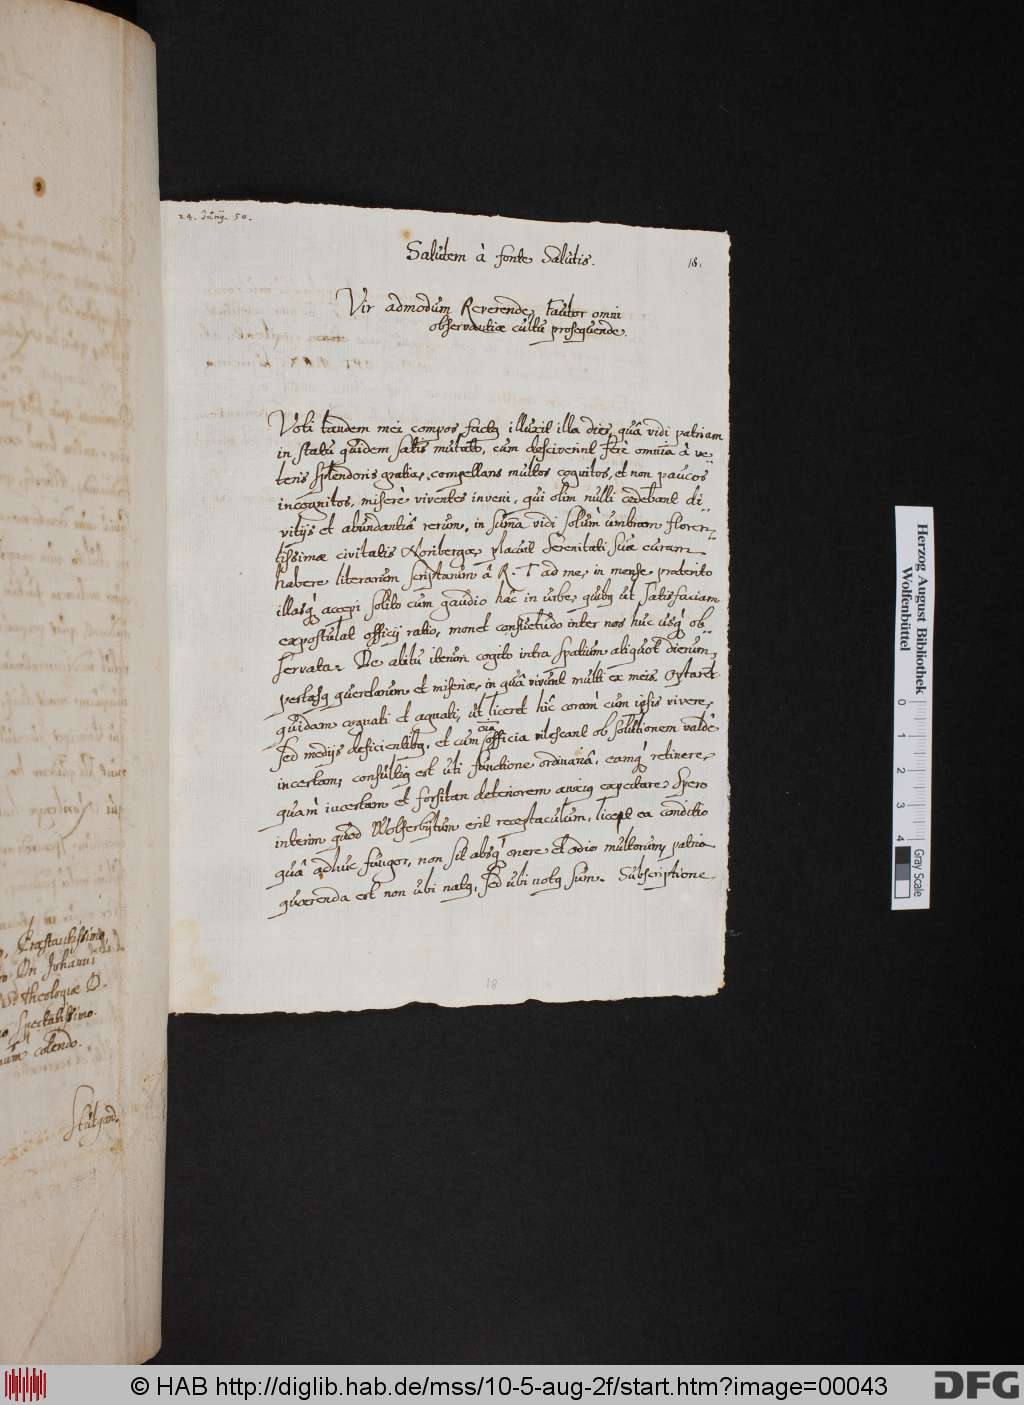 24. Junij. 50.
Salutem à fonte Salutis.
18.
Vir admodum Reverende, Fautor omni
observantiæ cultu prosequende.
Voti tandem mei compos factq illuxit illa dies, quâ vidi patriam
in statu quidem satis mutato, cum desciverint ferè omnia â ve-
teris splendoris gratia, compellans multos cognitos, et non paucos
incognitos, miserè viventes inveni, qui olim nulli cedebant di-
vitijs et abundantiâ rerum, in suma vidi solùm umbram floren-
tissimæ civitatis Noribergæ, placuit Serenitati suæ curam
habere literarum scriptarum â R. T ad me, in mense præterito
illasq́ accepi solito cum gaudio hâc in urbe, quibq ut satisfaciam
expostulat officij ratio, monet consuetudo inter nos huc usq́ ob-
servata. De abitu iterum cogito intra spatium aliquot dierum,
pertæsq querelarum et miseriæ, in quâ vivunt multi ex meis. Optarent
quidam cognati et agnati, ut liceret hîc coram cum ipsis vivere,
sed medijs deficientibq, et cum oia officia vilescant ob solutionem valdè
incertam, consultiq est uti functione ordinariâ, eamq́ retinere,
quàm incertam et forsitan deteriorem anxiq expectare. Spero
interim quod Wolferbÿtum erit receptaculum, licet ea conditio
quâ adhuc fungor, non sit absq́ onere et odio multorum, patria
quærenda est non ubi natq, sed ubi notq sum. Subscriptione
18
Præstantissimo
Dn Johanni
Theologiæ D.
Spectatissimo
colendo.
Stutgard.
Herzog August Bibliothek
Wolfenbüttel
0 1 2 3 4
Gray Scale
© HAB http://diglib.hab.de/mss/10-5-aug-2f/start.htm?image=00043
DFG